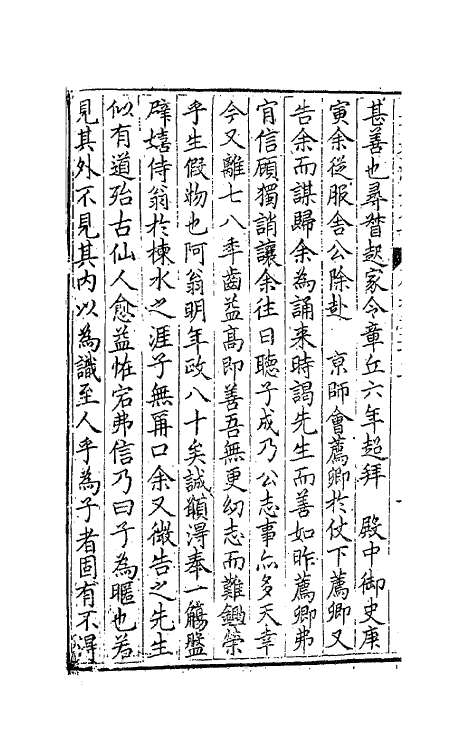 甚善也尋督起家令章丘六年超拜　殿中御史庚
寅余従服舎公除赴　京師會薦卿於仗下薦卿又
告余而謀歸余為誦来時謁先生而善如昨薦卿弗
肯信顧獨誚讓余往日聴子成乃公志事亦多天幸
今又離七八年齒益高即善吾無更幻志而難鑑榮
乎生假物也阿翁明年政八十矣誠願得奉一觴盤
辟嬉侍翁於棟水之涯子無再口余又徵告之先生
似有道殆古仙人愈益恠宕弗信乃曰子為暱也若
見其外不見其内以為識至人乎為子者固有不得